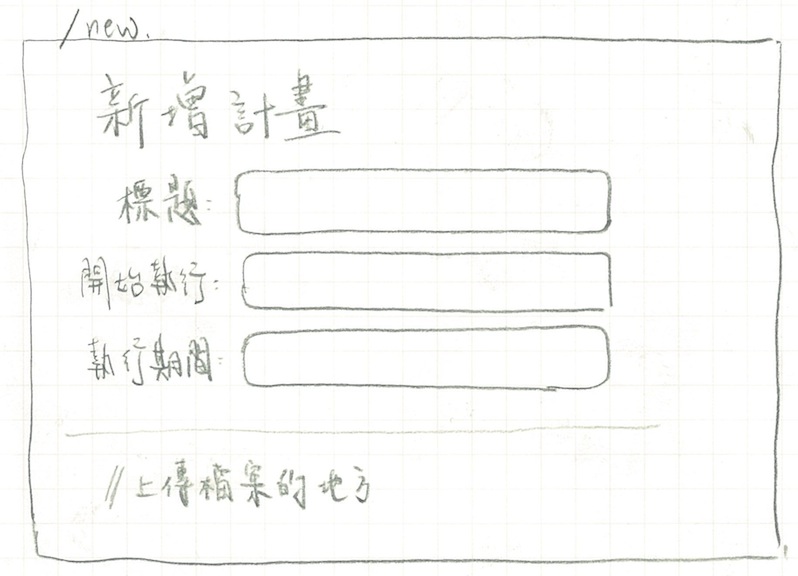 /new.
新增計畫
標題:
開始執行:
執行期間:
//上傳檔案的地方